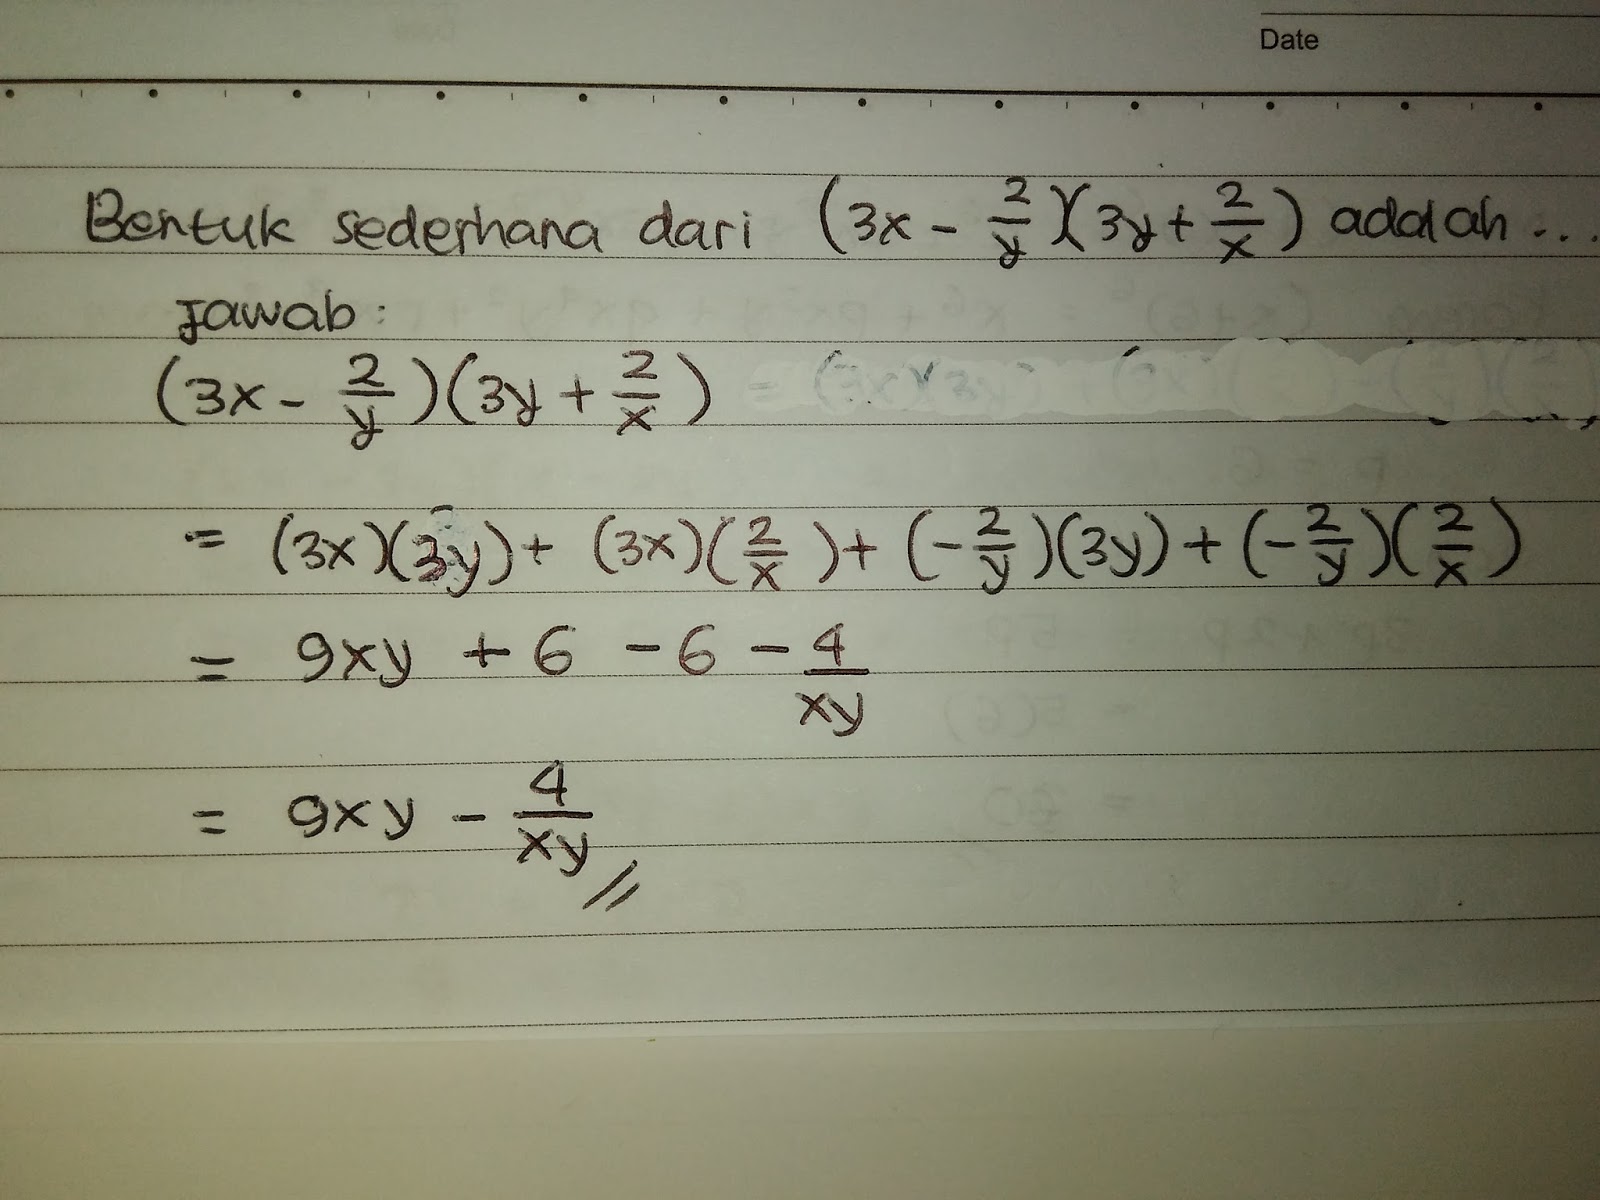 Date
Bentuk sederhana dari (3x - 2/y)(3y + 2/x) adalah ...
Jawab:
(3x - 2/y)(3y + 2/x)
= (3x)(3y) + (3x)(2/x) + (-2/y)(3y) + (-2/y)(2/x)
= 9xy + 6 - 6 - 4/xy
= 9xy - 4/xy //